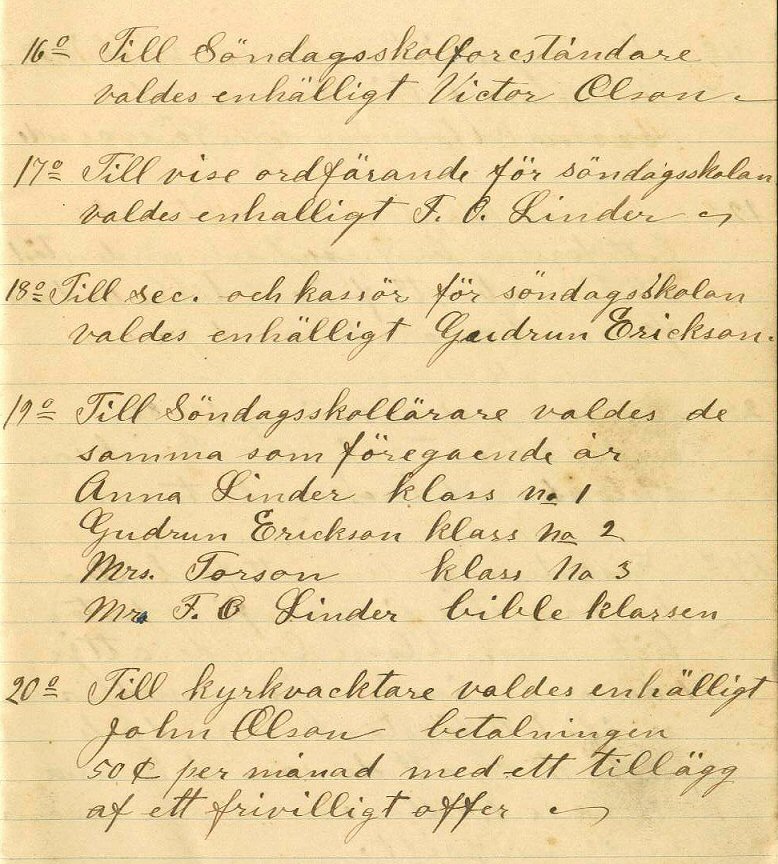 16º Till Söndagsskolforeståndare
valdes enhälligt Victor Olson
17º Till vise ordfärande för söndagsskolan
valdes enhalligt F. O. Linder
18º Till sec. och kassör för söndagsskolan
valdes enhälligt Gudrun Erickson.
19º Till Söndagsskollärare valdes de
samma som föregaende år
Anna Linder klass no 1
Gudrun Erickson klass no 2
Mrs. Torson klass No 3
Mrs F. O Linder bible klassen
20º Till kyrkvacktare valdes enhälligt
John Olson betalningen
50¢ per månad med ett tillägg
af ett frivilligt offer